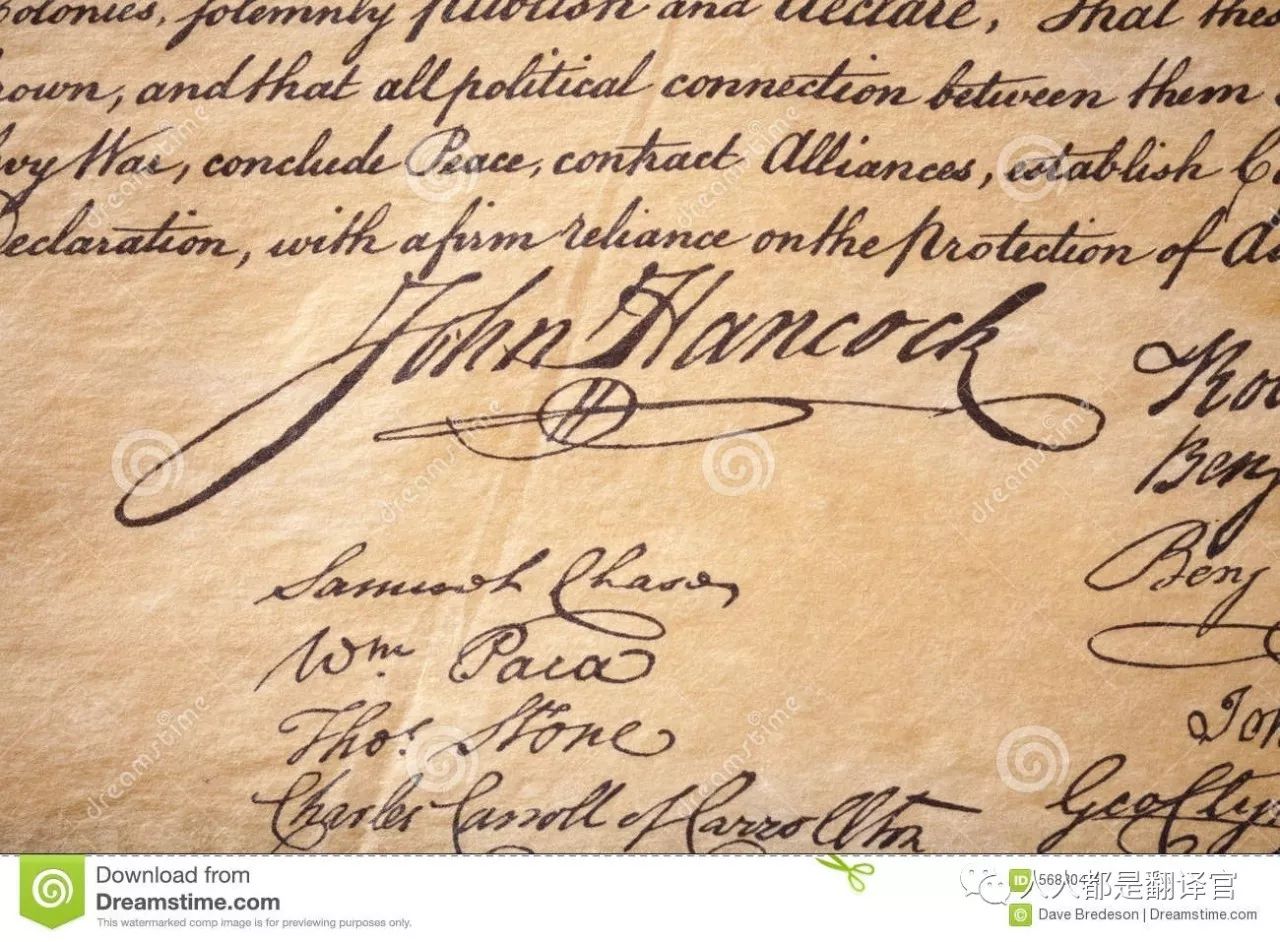 Colonies, solemnly publish and declare, That thes
rown, and that all political connection between them
evy War, conclude Peace, contract Alliances, establish Co
Declaration, with a firm reliance on the Protection of
John Hancock
Samuel Chase
Wm. Paca
Thos. Stone
Charles Carroll of Carrollton
Benj
Benj
Geo Cly
dreamstime
Download from
Dreamstime.com
This watermarked comp image is for previewing purposes only.
ID
人人都是翻译官
Dave Bredeson | Dreamstime.com